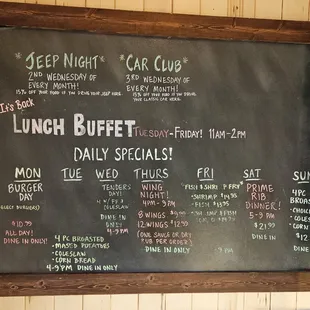 *JEEP NIGHT*
2ND WEDNESDAY OF
EVERY MONTH!
15% OFF YOUR FOOD IF YOU DRIVE YOUR JEEP HERE.
*CAR CLUB*
3RD WEDNESDAY OF
EVERY MONTH!
15% OFF YOUR FOOD IF YOU DRIVE
YOUR CLASSIC CAR HERE.
It's Back
LUNCH BUFFET TUESDAY-FRIDAY! 11AM-2PM
DAILY SPECIALS!
MON
BURGER
DAY
(SELECT BURGERS)
$10.99
ALL DAY!
DINE IN ONLY!
TUE WED
4 PC BROASTED
- MASHED POTATOES
- COLESLAW
- CORN BREAD
4-9PM DINE ONLY
TENDERS
DAY!
COLESLAW
DINE IN
ONLY
4-9PM
THURS
WING
NIGHT!
4PM - 9PM
8 WINGS $9.99
12 WINGS $12.99
(ONE SAUCE OR DRY
RUB PER ORDER)
DINE IN ONLY
FRI
-FISH & SHRIMP FRY*
-SHRIMP $14.95
-FISH $13.95
-9PM
SAT
PRIME
RIB
DINNER!
5-9 PM
$21.99
DINE IN
SUN
4 PC